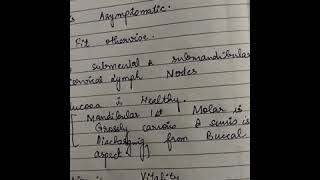 is Asymptomatic.
Fit otherwise.
submental & submandibular
cervical lymph Nodes
mucosa is Healthy.
Mandibular 1st Molar is
Grossly carrois & sinus is
Discharging from Buccal
aspect
Vitality